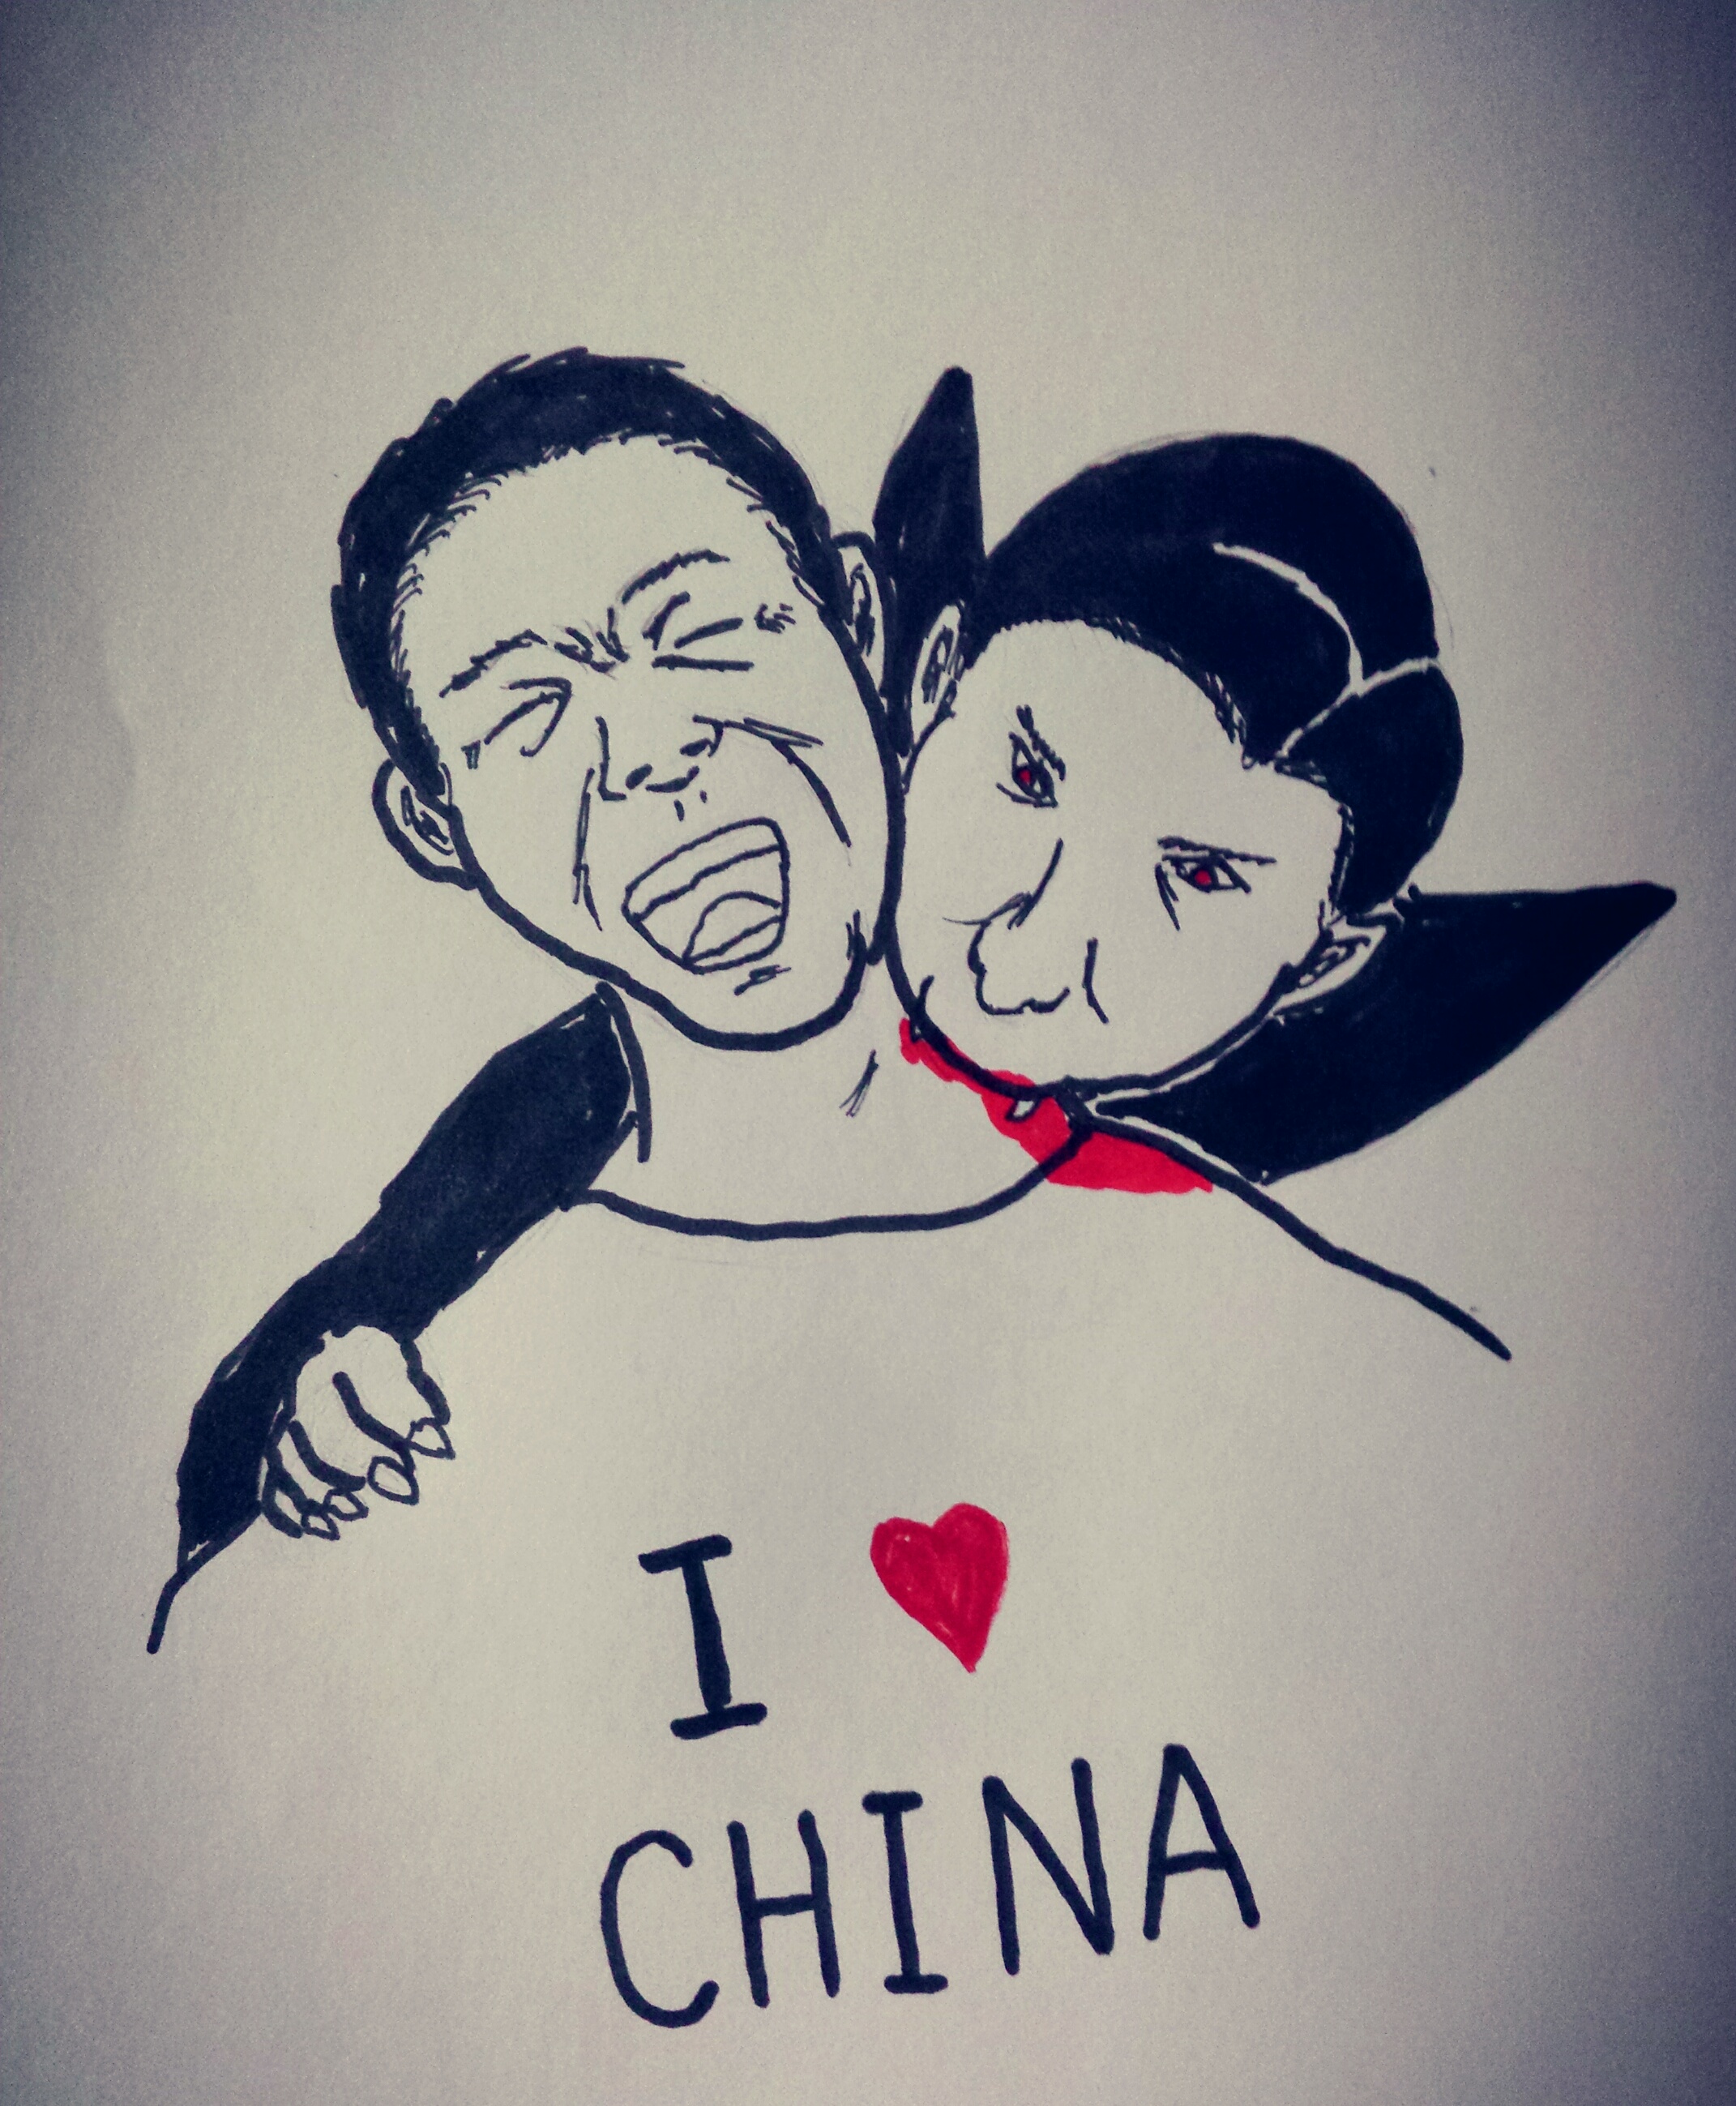 I ♥
CHINA